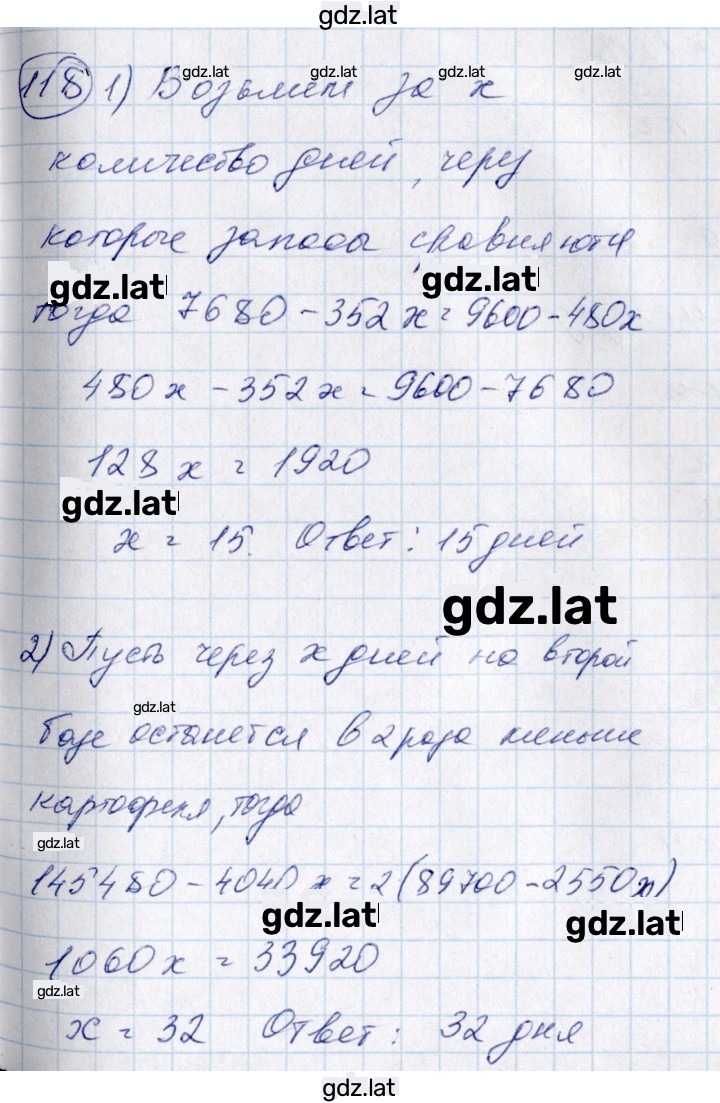 gdz.lat
118 1) Возьмем за x
gdz.lat gdz.lat gdz.lat
количество дней, через
которые запасы сравняются
gdz.lat gdz.lat
тогда 7680 - 352x = 9600 - 480x
480x - 352x = 9600 - 7680
128x = 1920
gdz.lat
x = 15. Ответ: 15 дней
gdz.lat
2) Пусть через x дней на второй
gdz.lat
базе останется в 2 раза меньше
картофеля, тогда
gdz.lat
145480 - 4040x = 2(89700 - 2550x)
gdz.lat gdz.lat
1060x = 33920
gdz.lat
x = 32 Ответ: 32 дня
gdz.lat